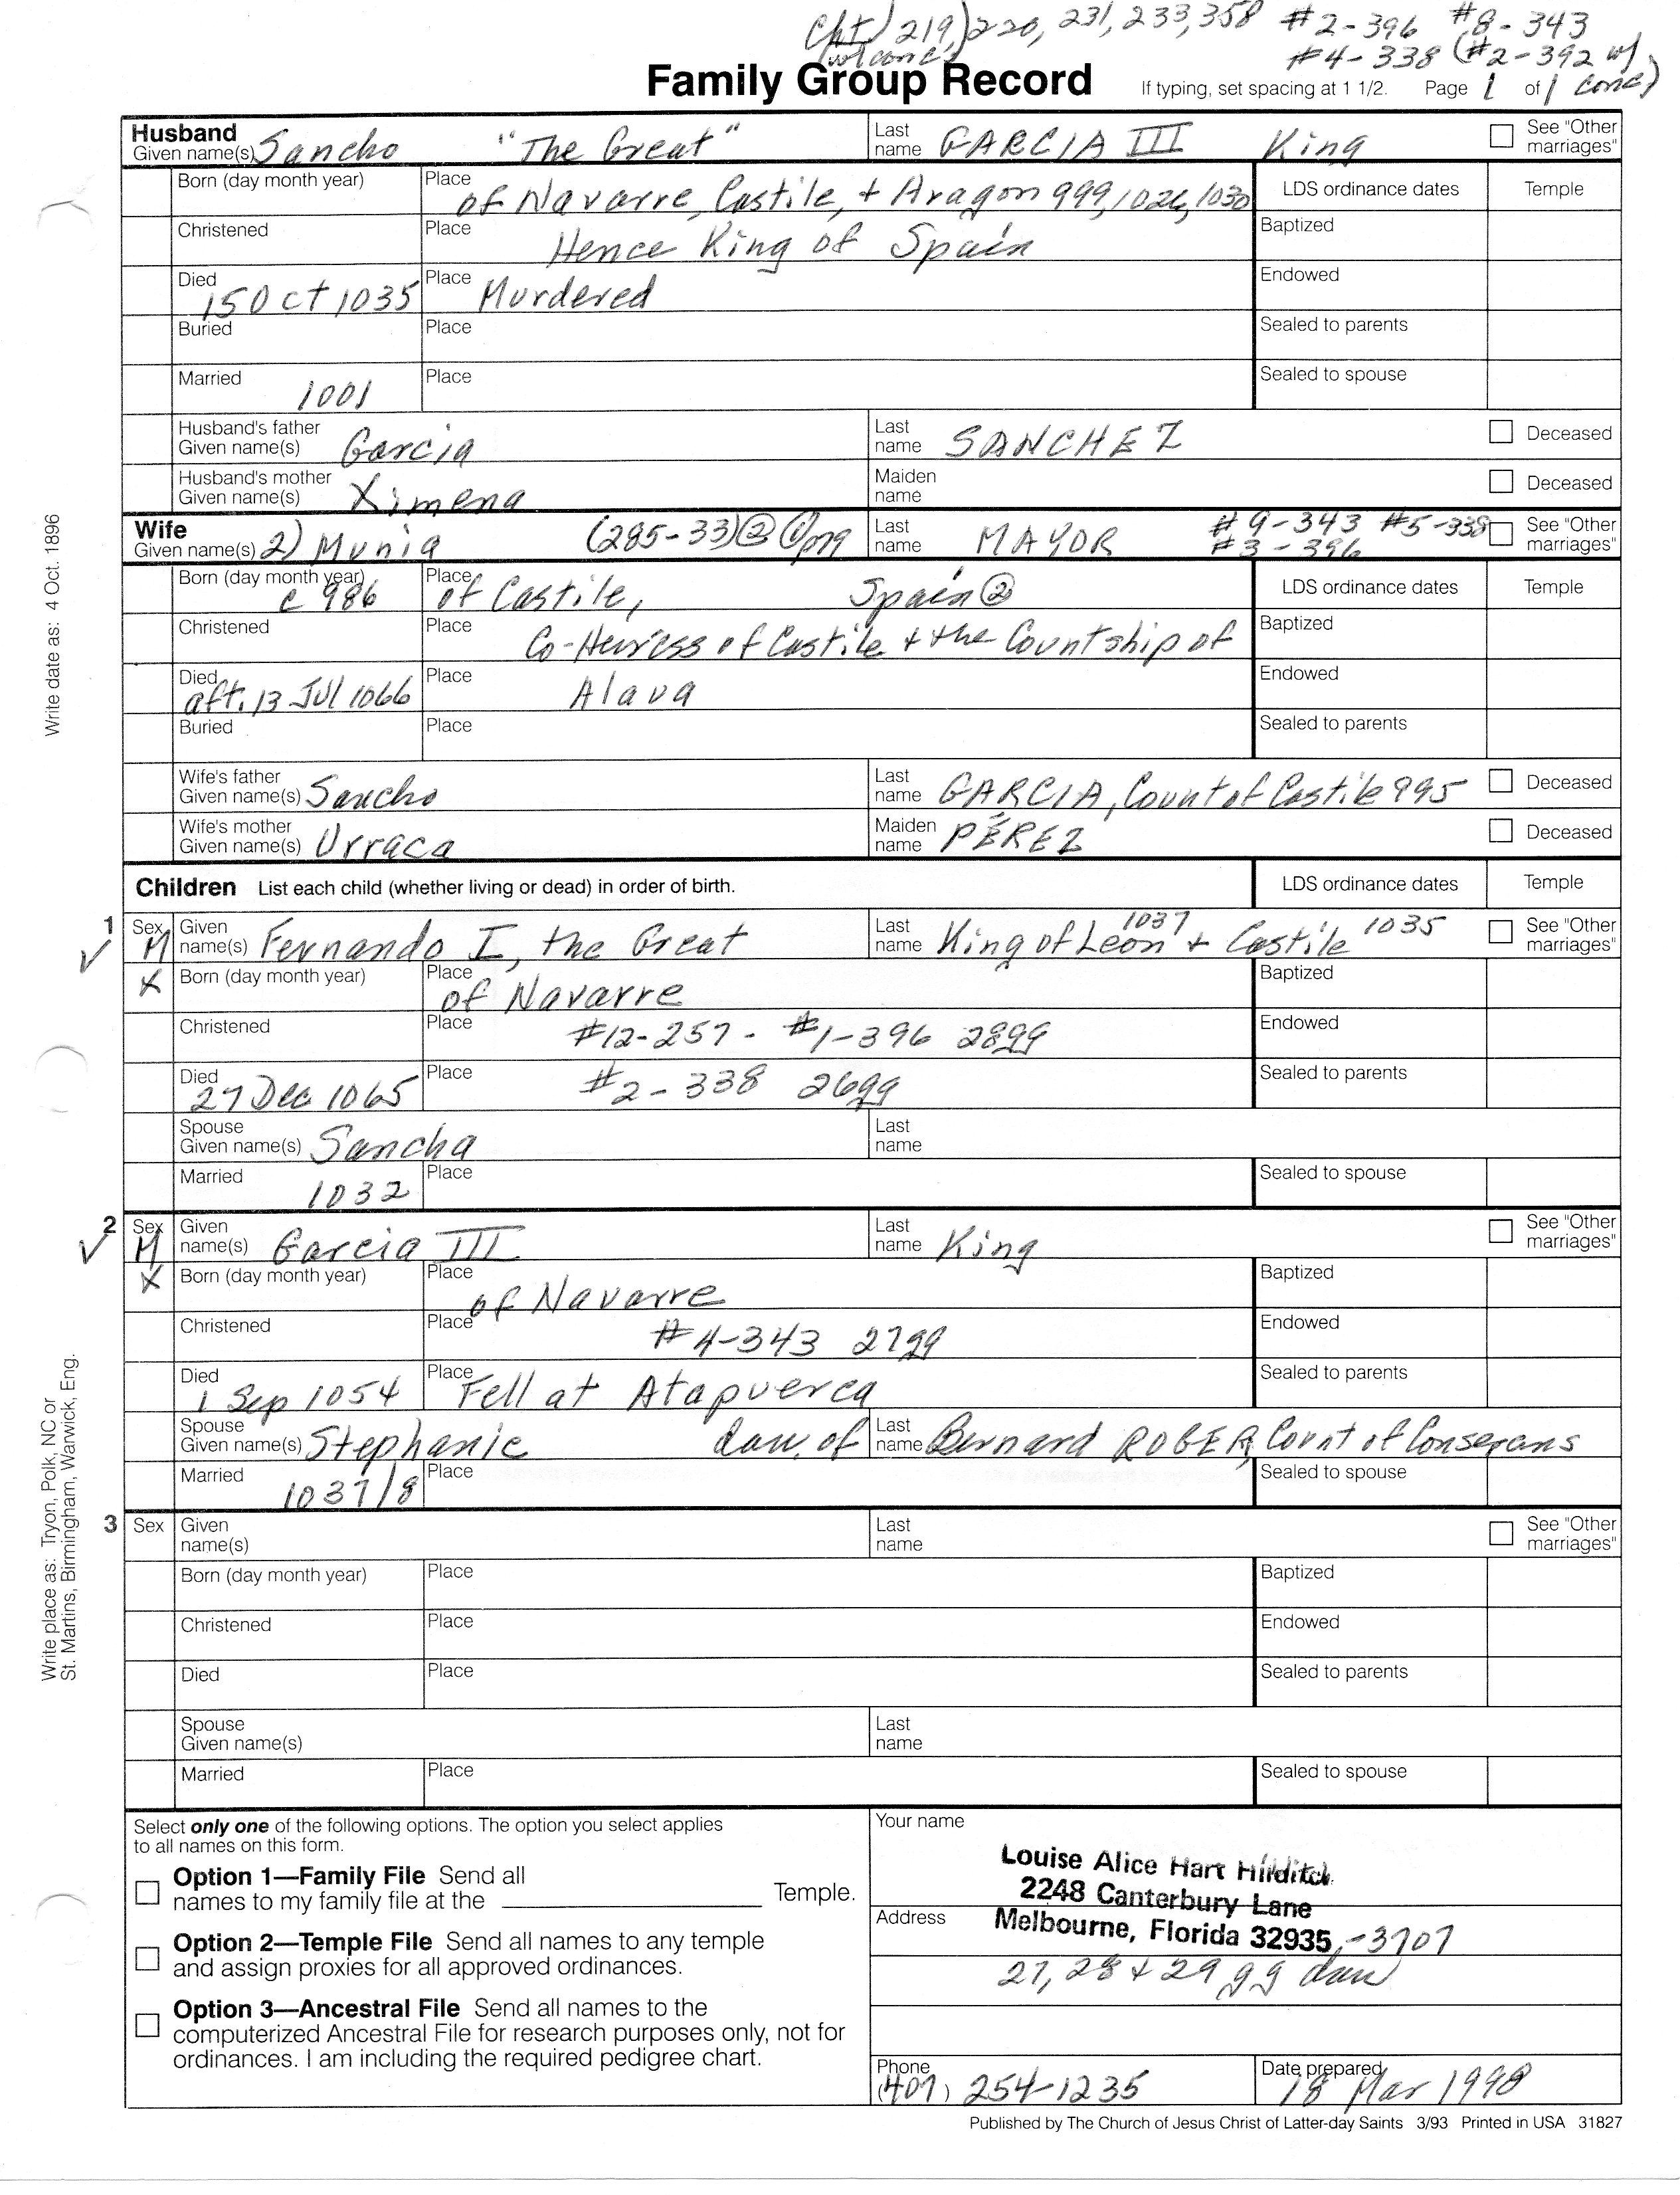 Cht) 219,) 220, 231, 233, 358 #2-396 #8-343
w/ conc) #4-338 (#2-392 w/
Family Group Record If typing, set spacing at 1 1/2. Page 1 of 1 conc)
Husband
Given name(s) Sancho "The Great" Last name GARCIA III King See "Other marriages"
Born (day month year) Place of Navarre, Castile, + Aragon 999, 1026, 1030 LDS ordinance dates Temple
Christened Place Hence King of Spain Baptized
Died 15 Oct 1035 Place Murdered Endowed
Buried Place Sealed to parents
Married 1001 Place Sealed to spouse
Husband's father Given name(s) Garcia Last name SANCHEZ Deceased
Husband's mother Given name(s) Ximena Maiden name Deceased
Wife
Given name(s) 2) Munia (285-33) ② Last name MAYOR #9-343 #5-338 #3-396 See "Other marriages"
Born (day month year) c 986 Place of Castile, Spain ② LDS ordinance dates Temple
Christened Place Co-Heiress of Castile + the Countship of Baptized
Died aft. 13 Jul 1066 Place Alava Endowed
Buried Place Sealed to parents
Wife's father Given name(s) Sancho Last name GARCIA, Count of Castile 995 Deceased
Wife's mother Given name(s) Urraca Maiden name PÉREZ Deceased
Children List each child (whether living or dead) in order of birth. LDS ordinance dates Temple
1 Sex M Given name(s) Fernando I, the Great Last name King of Leon 1037 + Castile 1035 See "Other marriages"
X Born (day month year) Place of Navarre Baptized
Christened Place #12-257 - #1-396 28gg Endowed
Died 27 Dec 1065 Place #2-338 26gg Sealed to parents
Spouse Given name(s) Sancha Last name
Married 1032 Place Sealed to spouse
2 Sex M Given name(s) Garcia III Last name King See "Other marriages"
X Born (day month year) Place of Navarre Baptized
Christened Place #4-343 27gg Endowed
Died 1 Sep 1054 Place Fell at Atapuerca Sealed to parents
Spouse Given name(s) Stephanie dau. of Last name Bernard ROGER, Count of Conserans
Married 1037/8 Place Sealed to spouse
3 Sex Given name(s) Last name See "Other marriages"
Born (day month year) Place Baptized
Christened Place Endowed
Died Place Sealed to parents
Spouse Given name(s) Last name
Married Place Sealed to spouse
Select only one of the following options. The option you select applies
to all names on this form.
Option 1—Family File Send all
names to my family file at the Temple.
Option 2—Temple File Send all names to any temple
and assign proxies for all approved ordinances.
Option 3—Ancestral File Send all names to the
computerized Ancestral File for research purposes only, not for
ordinances. I am including the required pedigree chart.
Your name
Louise Alice Hart Hilditch
2248 Canterbury Lane
Address Melbourne, Florida 32935 -3707
27, 28 + 29 gg dau
Phone (407) 254-1235 Date prepared 18 Mar 1998
Published by The Church of Jesus Christ of Latter-day Saints 3/93 Printed in USA 31827
Write date as: 4 Oct. 1896
Write place as: Tryon, Polk, NC or
St. Martins, Birmingham, Warwick, Eng.